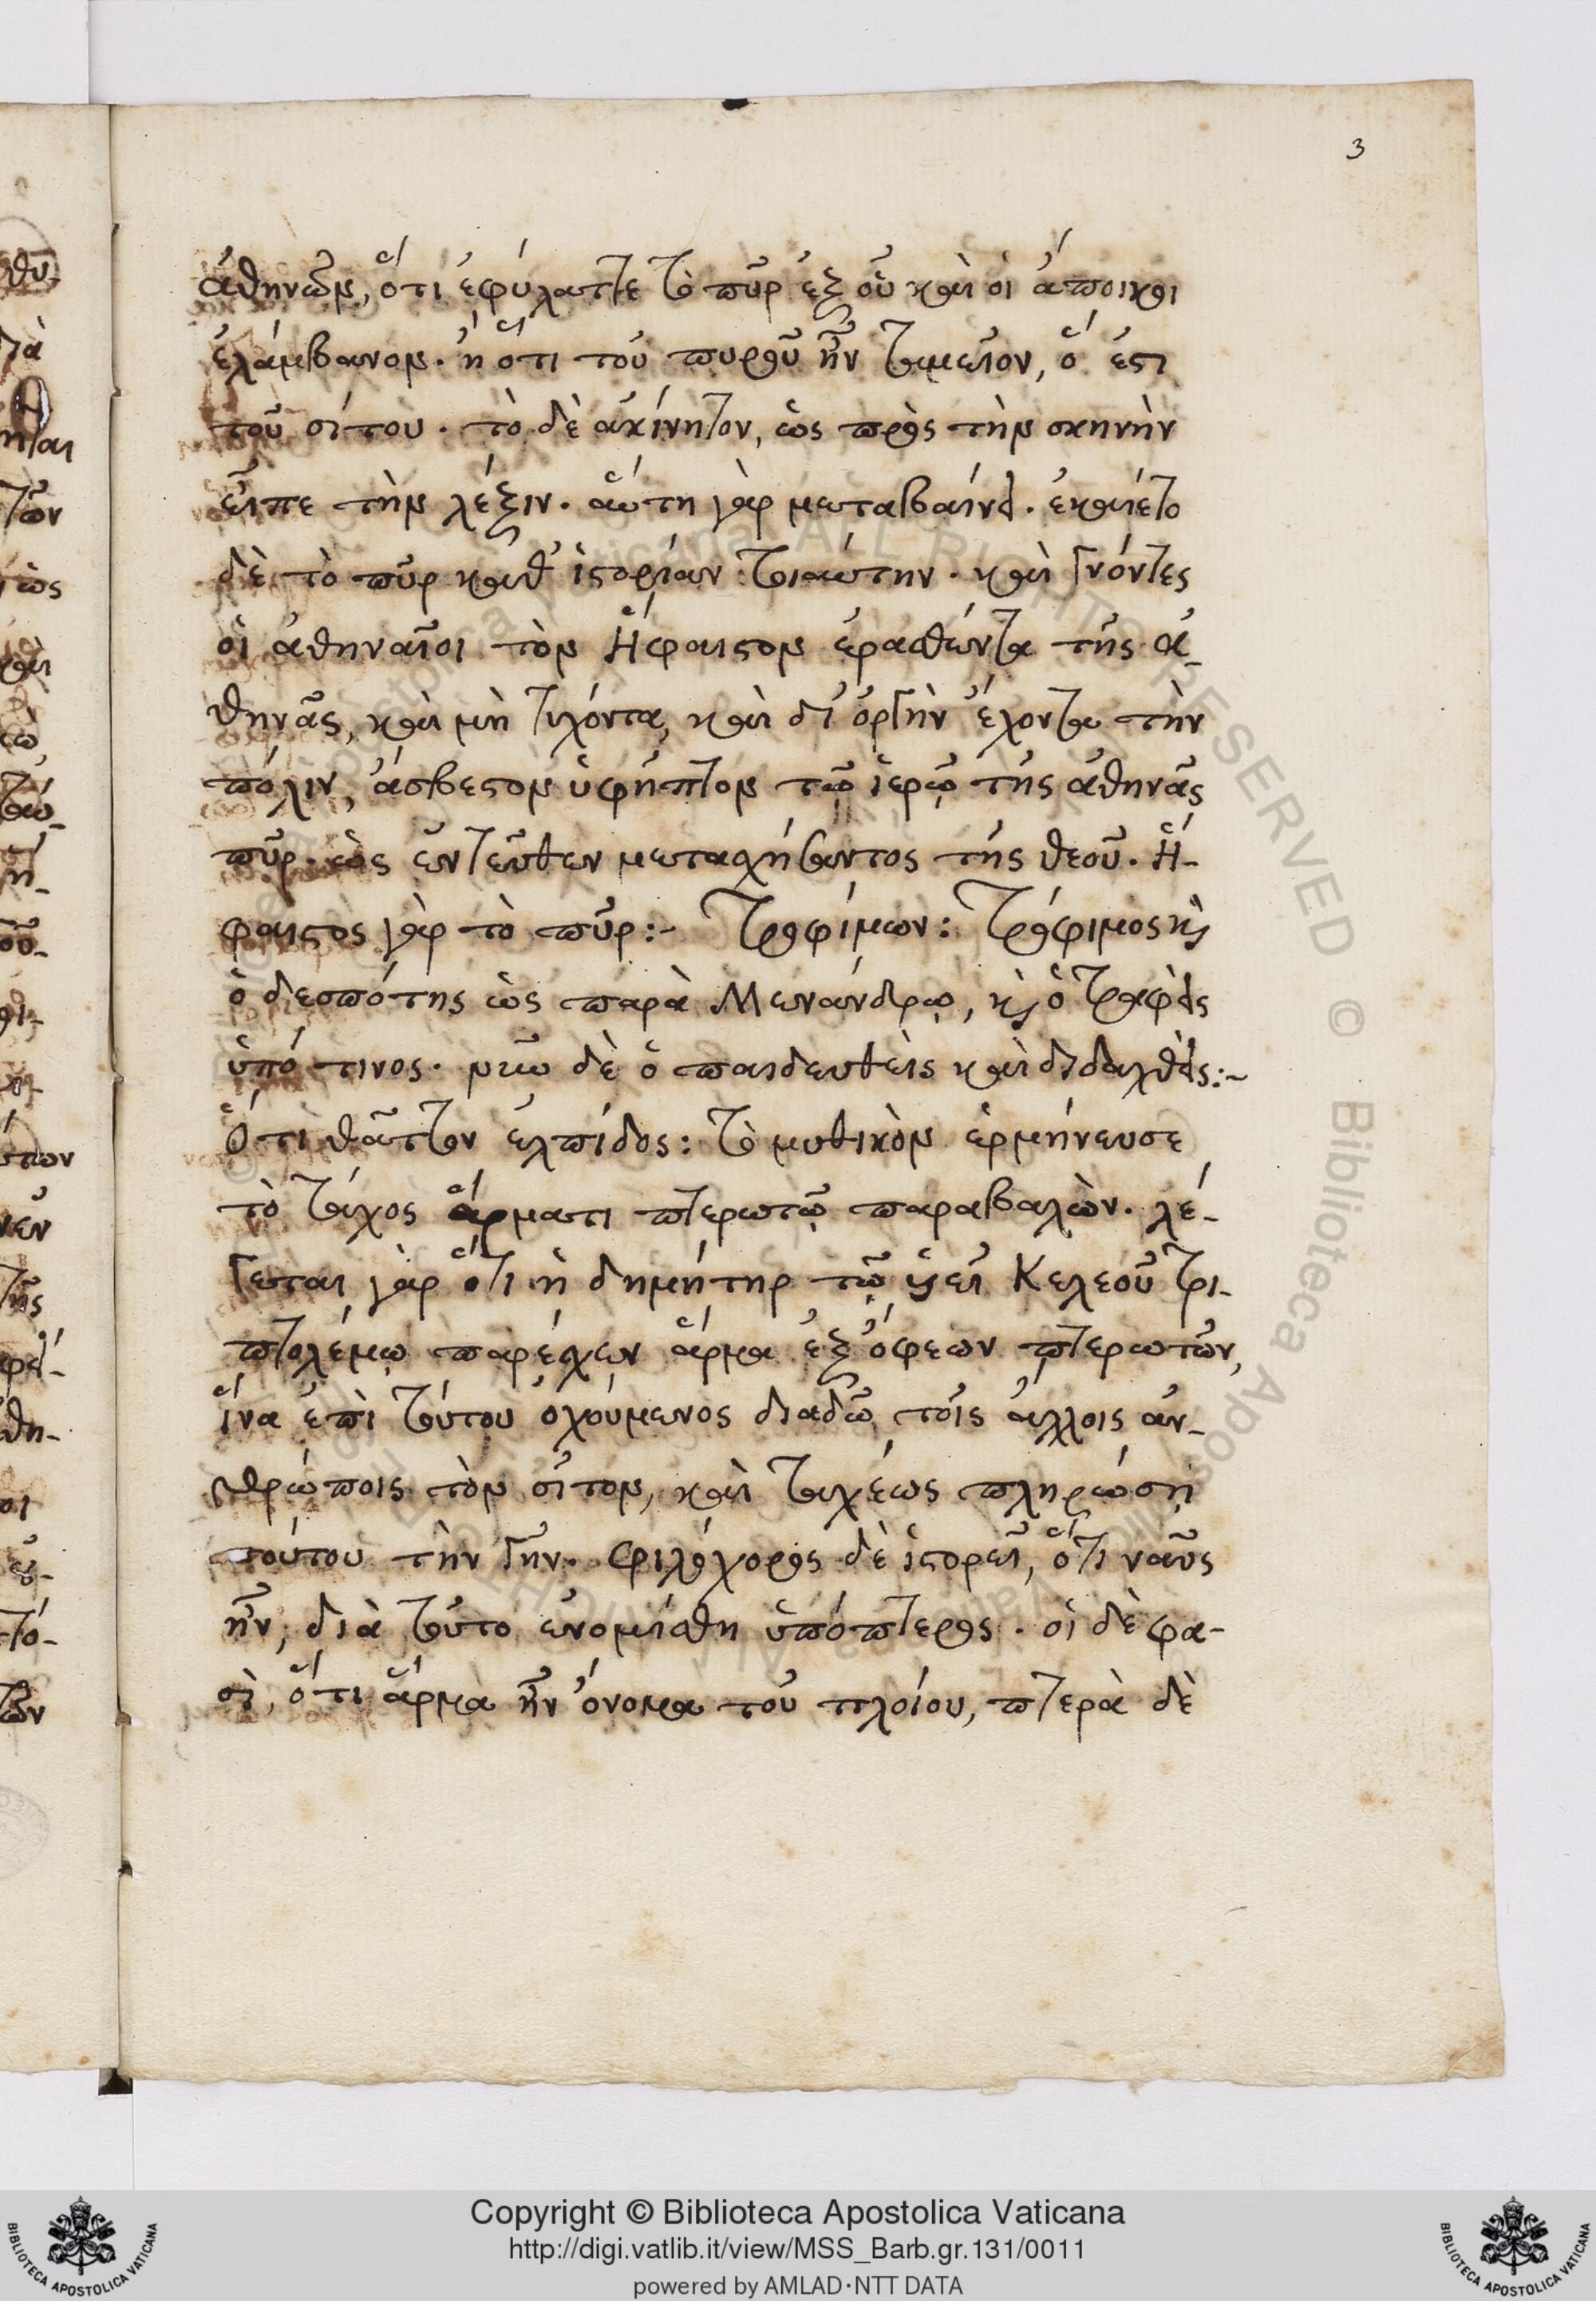 3
ἀθηνῶν, ὅτι ἐφύλαττε τὸ πῦρ ἐξ οὗ καὶ οἱ ἄποικοι
ἐλάμβανον. ἢ ὅτι τοῦ πυροῦ ἦν ταμεῖον, ὅ ἐστι
τοῦ σίτου. τὸ δὲ ἀκίνητον, ὡς πρὸς τὴν σκηνὴν
εἶπε τὴν λέξιν. αὕτη γὰρ μεταβαίνει. ἐκαίετο
δὲ τὸ πῦρ καθ' ἱστορίαν τοιαύτην. καὶ γνόντες
οἱ ἀθηναῖοι τὸν Ἥφαιστον ἐρασθέντα τῆς ἀ-
θηνᾶς, καὶ μὴ τυχόντα, καὶ δι' ὀργὴν ἔχοντα τὴν
πόλιν, ἄσβεστον ὑφῆπτον τῷ ἱερῷ τῆς ἀθηνᾶς
πῦρ. ὡς ἐντεῦθεν μετασχήσοντος τῆς θεοῦ. Ἥ-
φαιστος γὰρ τὸ πῦρ:- Τροφίμων: Τρόφιμος καὶ
ὁ δεσπότης ὡς παρὰ Μενάνδρῳ, καὶ ὁ τραφεὶς
ὑπό τινος. νῦν δὲ ὁ παιδευθεὶς καὶ διδαχθείς:-
Ὅτι θᾶττον ἐλπίδος: τὸ μυθικὸν ἑρμήνευσε
τὸ τάχος ἅρματι πτερωτῷ παραβαλὼν. λέ-
γεται γὰρ ὅτι ἡ δημήτηρ τῷ υἱεῖ Κελεοῦ Τρι-
πτολέμῳ παρέσχεν ἅρμα ἐξ ὄφεων πτερωτῶν,
ἵνα ἐπὶ τούτου ὀχούμενος διαδῷ τοῖς ἄλλοις ἀν-
θρώποις τὸν σῖτον, καὶ ταχέως πληρώσῃ
τούτου τὴν γῆν. Φιλόχορος δὲ ἱστορεῖ, ὅτι ναῦς
ἦν, διὰ τοῦτο ἐνομίσθη ὑπόπτερος. οἱ δὲ φα-
σὶ, ὅτι ἅρμα ἦν ὄνομα τοῦ πλοίου, πτερὰ δὲ
Copyright © Biblioteca Apostolica Vaticana
http://digi.vatlib.it/view/MSS_Barb.gr.131/0011
powered by AMLAD·NTT DATA
BIBLIOTECA APOSTOLICA VATICANA
BIBLIOTECA APOSTOLICA VATICANA